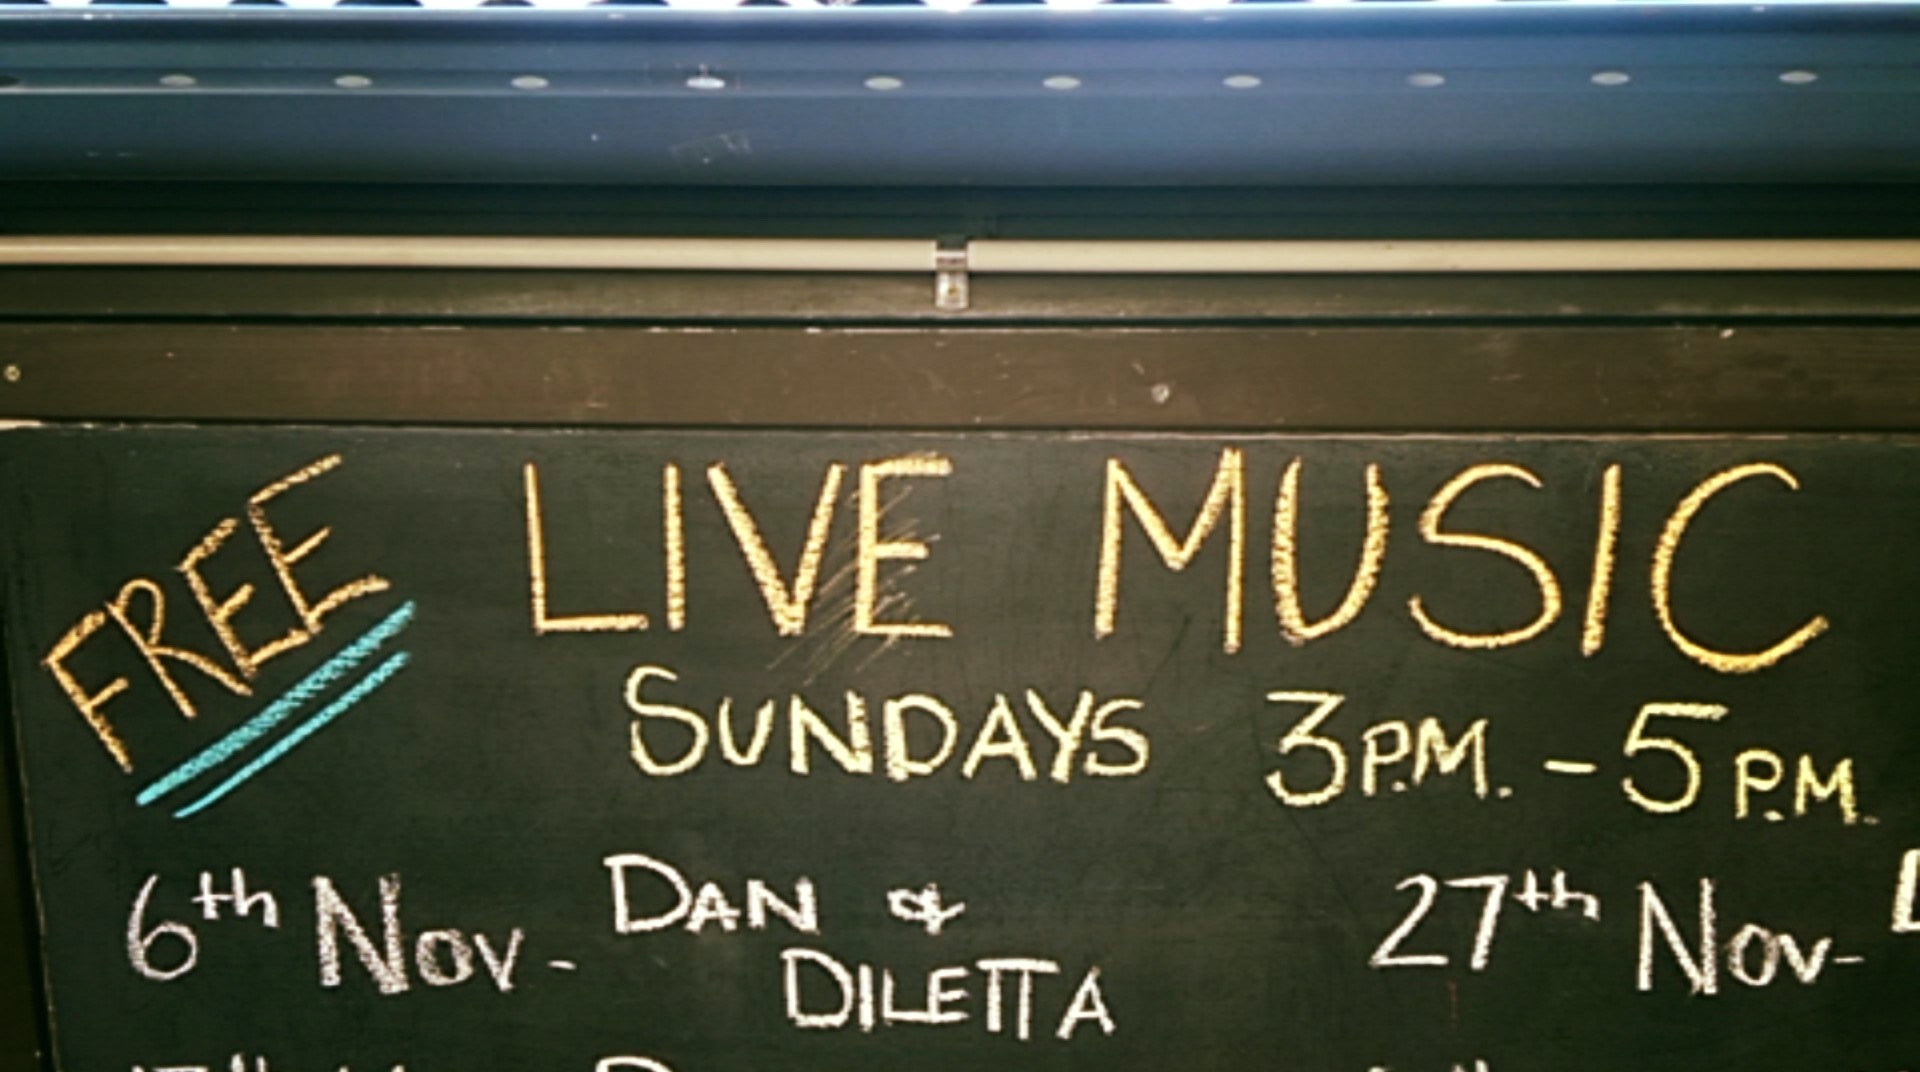 FREE
LIVE MUSIC
SUNDAYS 3P.M. - 5P.M.
6th Nov - DAN &
DILETTA
27th Nov -